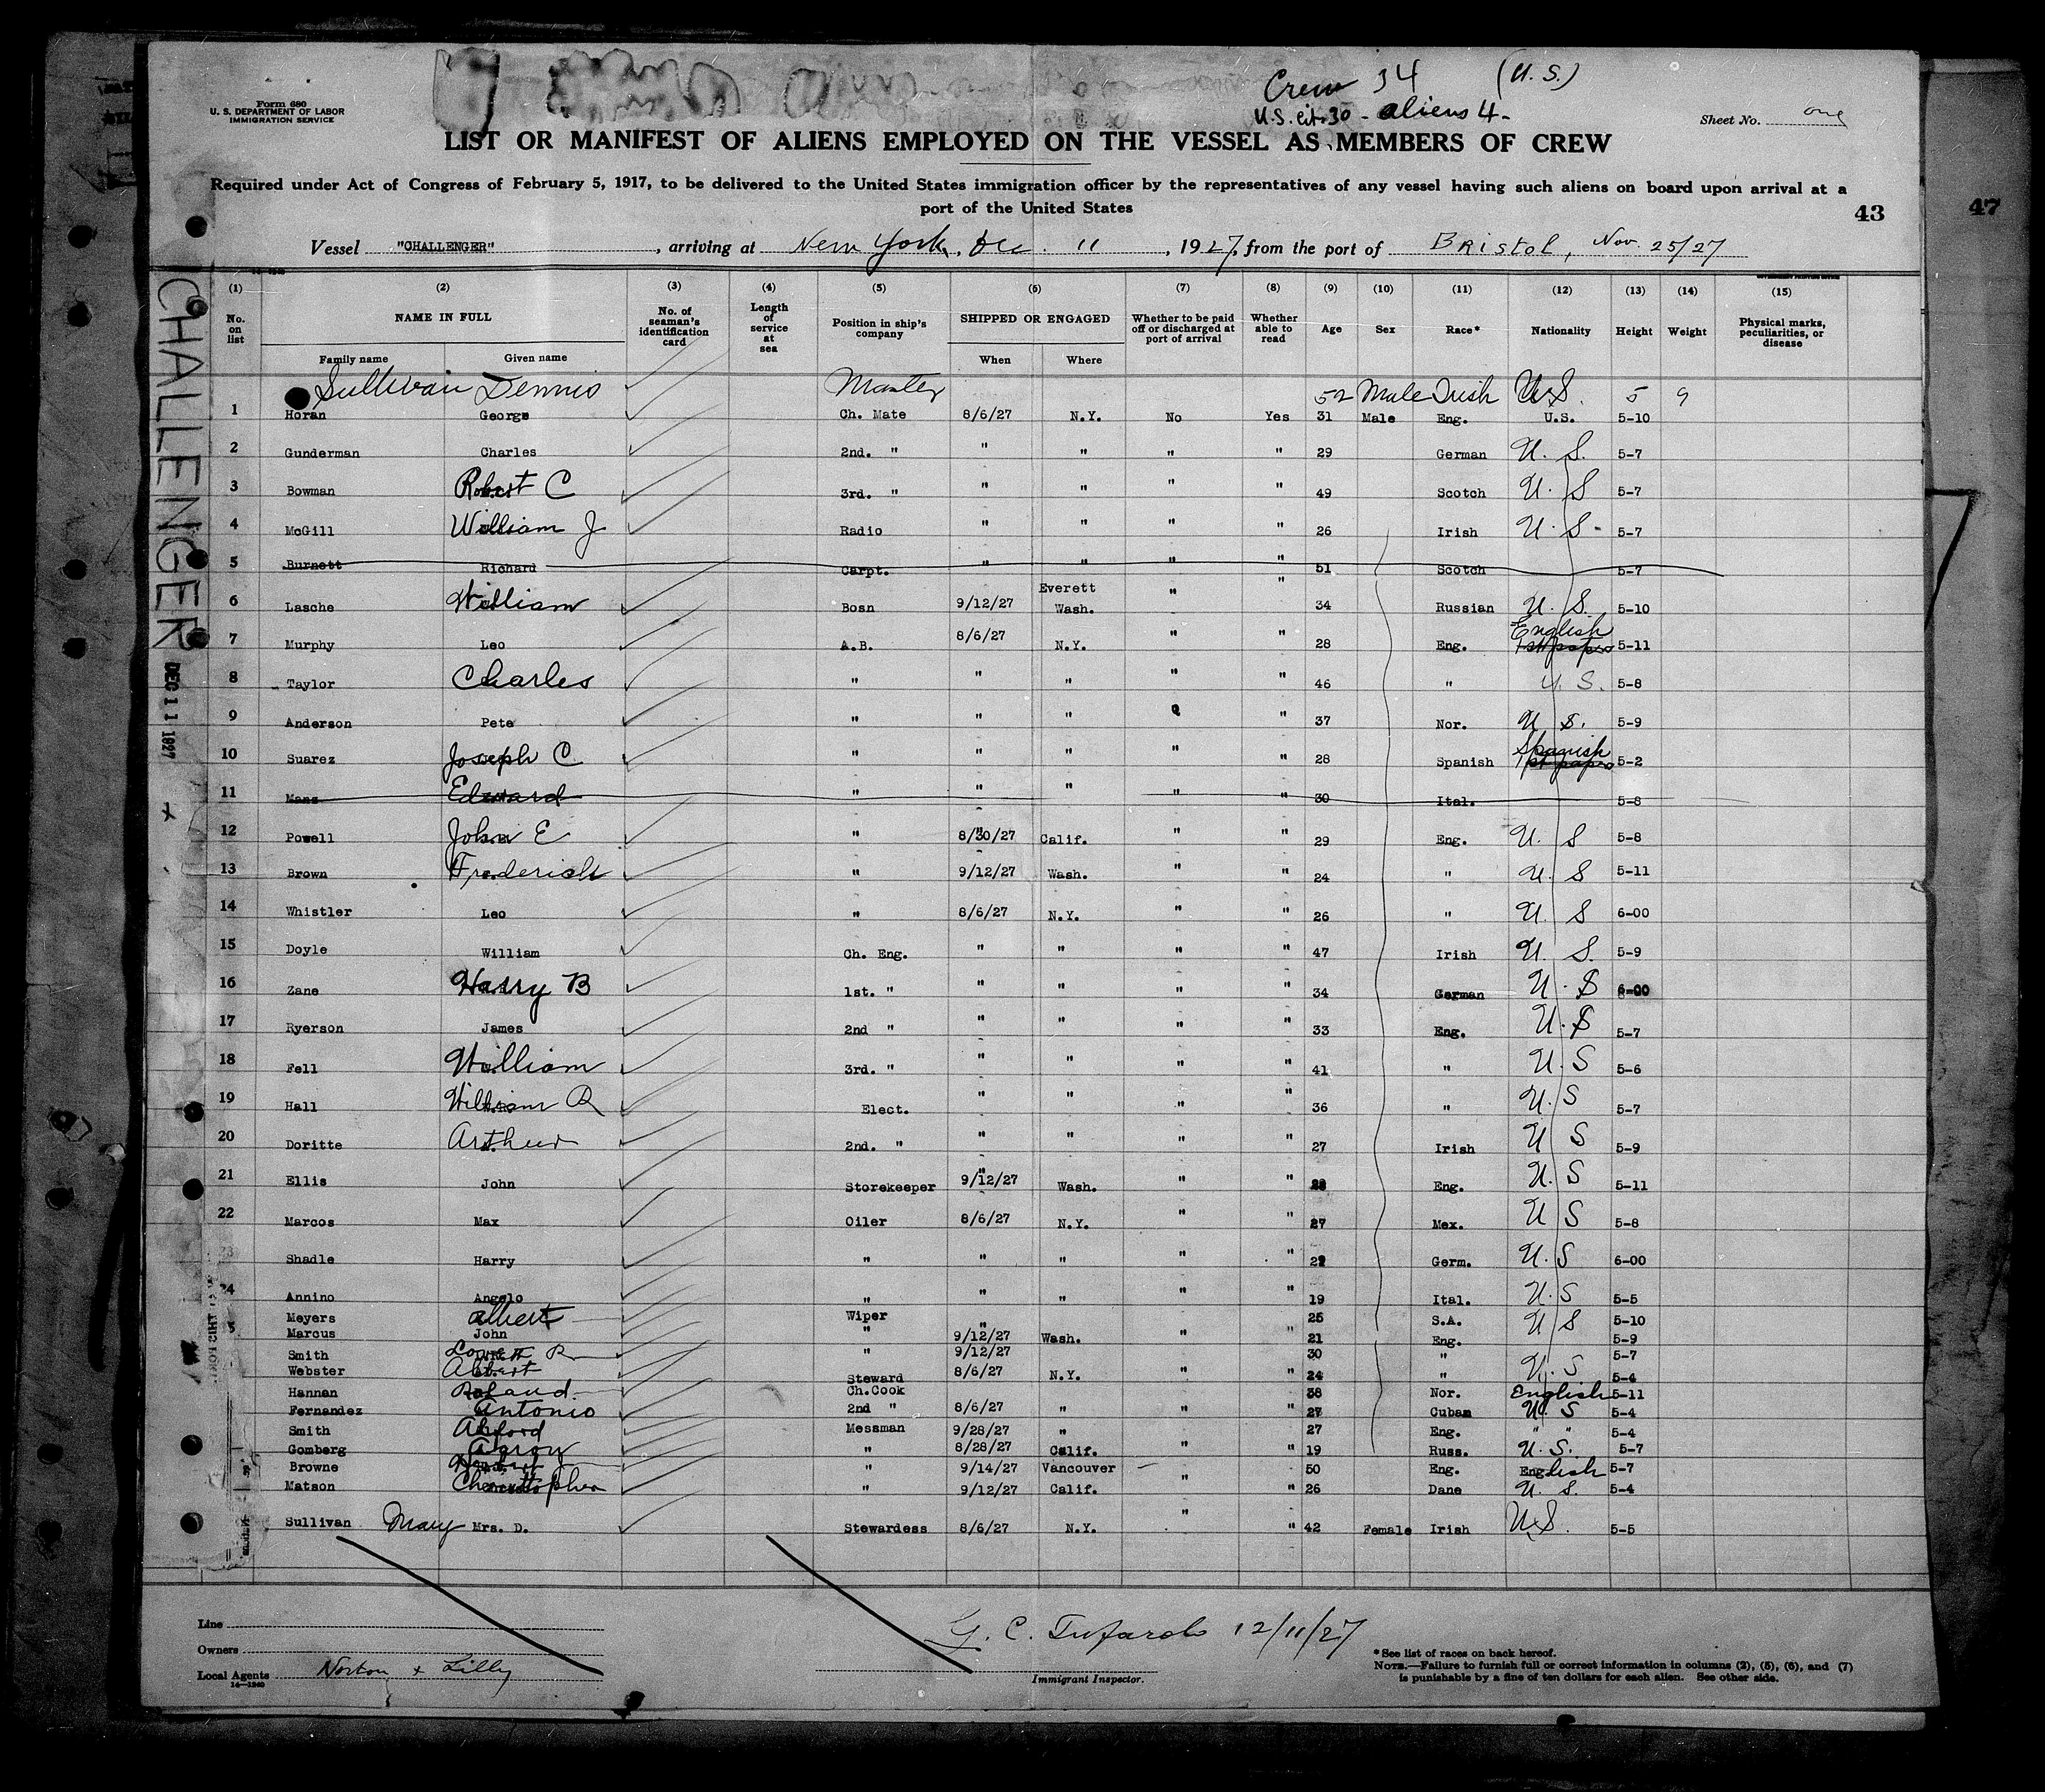 Crew 34 (U.S.)
U.S. cit. 30 - aliens 4 -
Form 680
U. S. DEPARTMENT OF LABOR
IMMIGRATION SERVICE
Sheet No. one
LIST OR MANIFEST OF ALIENS EMPLOYED ON THE VESSEL AS MEMBERS OF CREW
Required under Act of Congress of February 5, 1917, to be delivered to the United States immigration officer by the representatives of any vessel having such aliens on board upon arrival at a
port of the United States
43
47
Vessel "CHALLENGER", arriving at New York, Dec. 11, 1927, from the port of Bristol, Nov. 25/27
CHALLENGER
DEC 11 1927
(1) (2) (3) (4) (5) (6) (7) (8) (9) (10) (11) (12) (13) (14) (15)
No. on list NAME IN FULL No. of seaman's identification card Length of service at sea Position in ship's company SHIPPED OR ENGAGED Whether to be paid off or discharged at port of arrival Whether able to read Age Sex Race* Nationality Height Weight Physical marks, peculiarities, or disease
Family name Given name When Where
Sullivan Dennis Master 52 Male Irish U.S. 5 9
1 Horan George Ch. Mate 8/6/27 N.Y. No Yes 31 Male Eng. U.S. 5-10
2 Gunderman Charles 2nd. " " " " " 29 German U. S. 5-7
3 Bowman Robert C 3rd. " " " " " 49 Scotch U. S 5-7
4 McGill William J Radio " " " " 26 Irish U. S. 5-7
5 Burnett Richard Carpt. " " " " 51 Scotch 5-7
6 Lasche William Bosn 9/12/27 Everett Wash. " " 34 Russian U. S. 5-10
7 Murphy Leo A.B. 8/6/27 N.Y. " " 28 Eng. English 1st papers 5-11
8 Taylor Charles " " " " " 46 " U. S. 5-8
9 Anderson Pete " " " " " 37 Nor. U S. 5-9
10 Suarez Joseph C. " " " " " 28 Spanish Spanish 1st papers 5-2
11 Manz Edward " " " " " 30 Ital. 5-8
12 Powell John E " 8/30/27 Calif. " " 29 Eng. U. S 5-8
13 Brown Frederich " 9/12/27 Wash. " " 24 " U S 5-11
14 Whistler Leo " 8/6/27 N.Y. " " 26 " U. S 6-00
15 Doyle William Ch. Eng. " " " " 47 Irish U. S. 5-9
16 Zane Harry B 1st. " " " " " 34 German U. S 6-00
17 Ryerson James 2nd " " " " " 33 Eng. U. S 5-7
18 Fell William 3rd. " " " " " 41 " U. S 5-6
19 Hall William R Elect. " " " " 36 " U. S 5-7
20 Doritte Arthur 2nd. " " " " " 27 Irish U S 5-9
21 Ellis John Storekeeper 9/12/27 Wash. " " Eng. U. S 5-11
22 Marcos Max Oiler 8/6/27 N.Y. " " 27 Mex. U S 5-8
23 Shadle Harry " " " " " Germ. U. S 6-00
24 Annino Angelo " " " " " 19 Ital. U. S 5-5
Meyers Albert Wiper " 25 S.A. U S 5-10
Marcus John " 9/12/27 Wash. " " 21 Eng. 5-9
Smith " 9/12/27 30 " 5-7
Webster Albert Steward 8/6/27 N.Y. " " 24 " U. S 5-4
Hannan Roland Ch.Cook 38 Nor. English 5-11
Fernandez Antonio 2nd " 8/6/27 " " " 27 Cuban U. S 5-4
Smith Messman 9/28/27 " 27 Eng. " " 5-4
Gomberg " 8/28/27 Calif. " " 19 Russ. U. S. 5-7
Browne " 9/14/27 Vancouver 50 Eng. English 5-7
Matson Christopher " 9/12/27 Calif. " " 26 Dane U. S. 5-4
Sullivan Mary Mrs. D. Stewardess 8/6/27 N.Y. " " 42 Female Irish U.S. 5-5
Line
Owners
Local Agents Norton & Lilly
14—1240
12/11/27
Immigrant Inspector.
*See list of races on back hereof.
NOTE.—Failure to furnish full or correct information in columns (2), (5), (6), and (7)
is punishable by a fine of ten dollars for each alien. See other side.